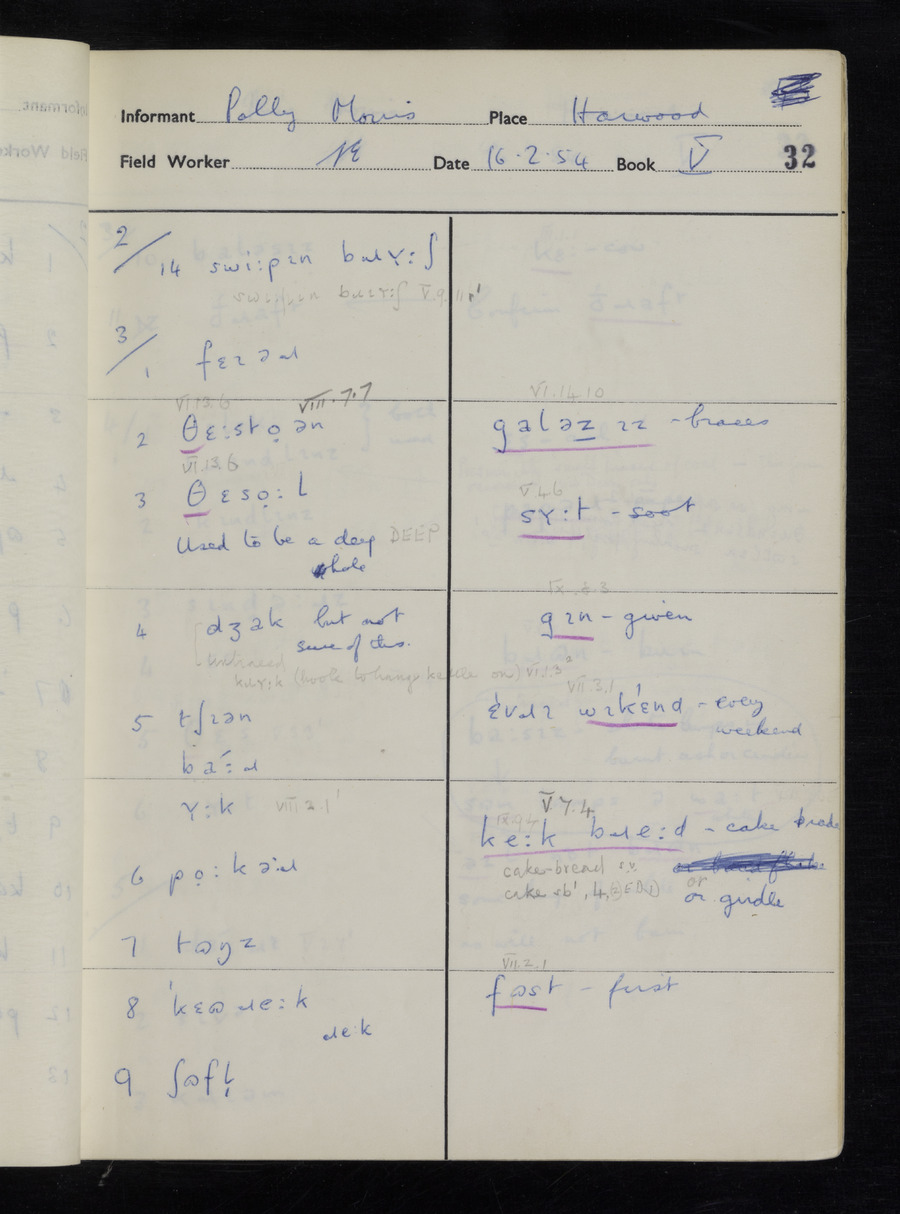 Informant Polly Morris Place Harwood
Field Worker NE Date 16.2.54 Book V 32
2/14 swi:pɪn bɹʏ:ʃ
V.9.11
3/1 fɛɪəɹ
VI.13.6 VIII.7.7
2 θɛ:stọən
VI.13.6
3 θɛsọ:l
Used to be a deep DEEP
hole
4 dʒak but not
sure of this.
(hook to hang kettle on) VI.1.3
5 tʃɪən
ba:ɹ
ʏ:k VIII.2.1
6 pọ:kəɹ
7 tɷŋz
8 ˈkɛɷɹe:k
ɹe:k
9 ʃɷfl̩
VI.14.10
galəzɪz - braces
V.4.6
sʏ:t - soot
IX.
gɪn - given
VII.3.1
ˈɛvɹɪ wɪkˈɛnd - every
weekend
V.7.4
IX.9.4
ke:k bɹe:d - cake
cake-bread s.v.
cake sb¹, 4, EDD
or
or girdle
VII.2.1
fɷst - first